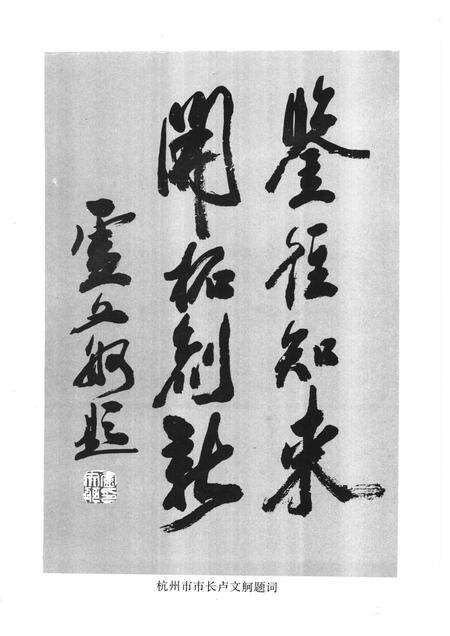 鉴往知来
開拓創新
盧文舸題
杭州市市长卢文舸题词